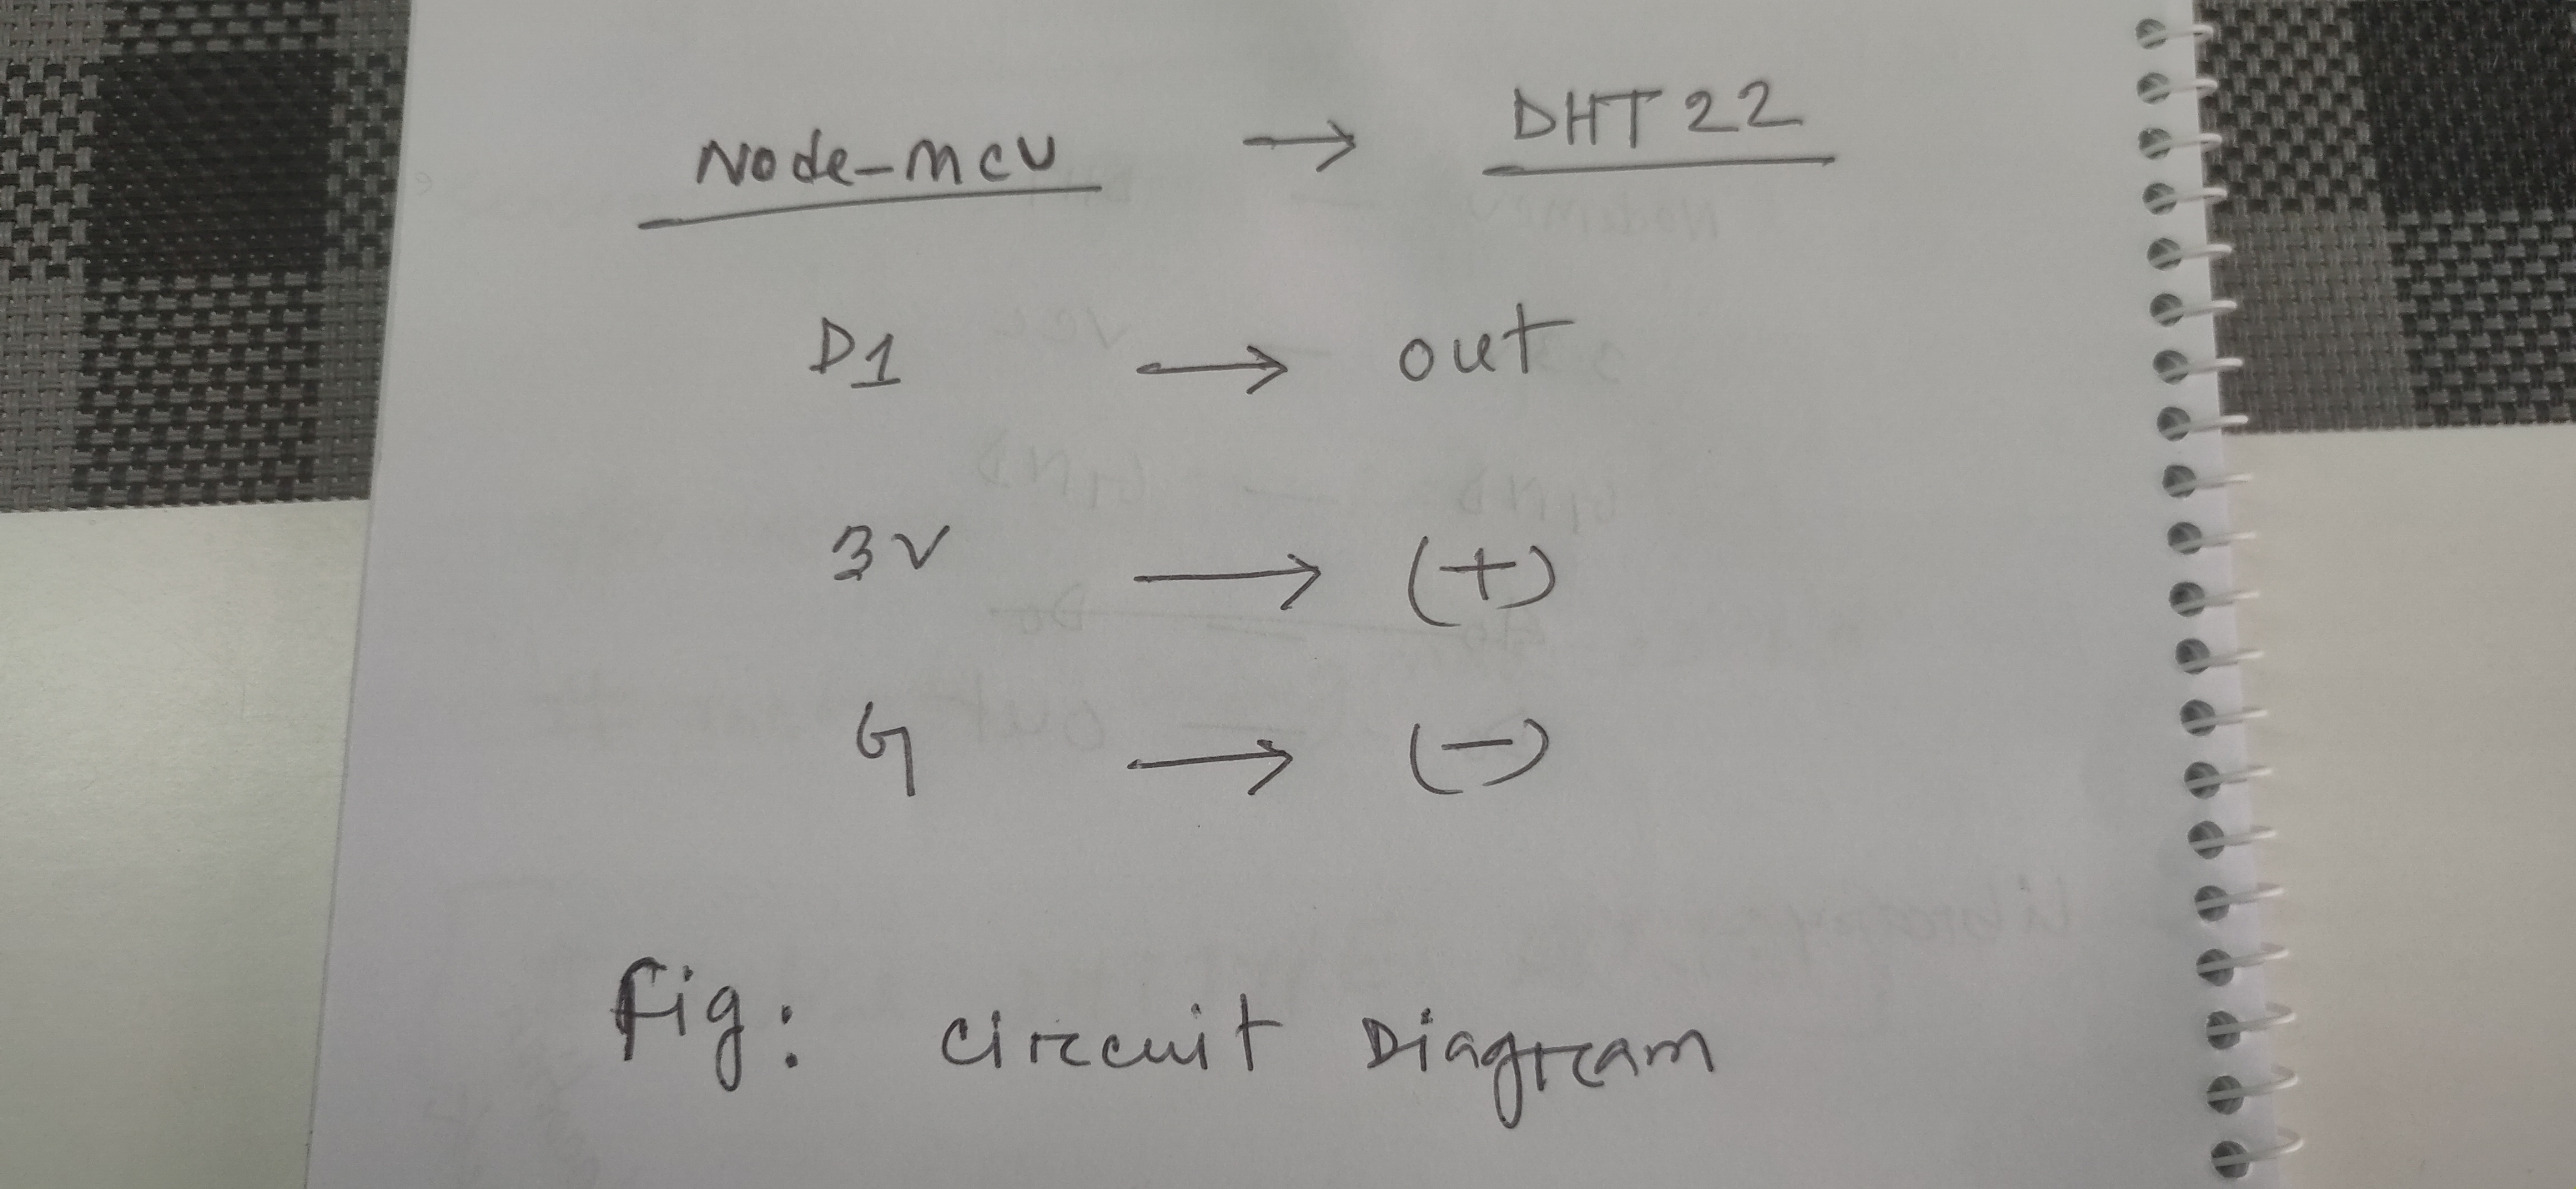 Node-mcu → DHT22
D1 → out
3V → (+)
G → (-)
Fig: Circuit Diagram